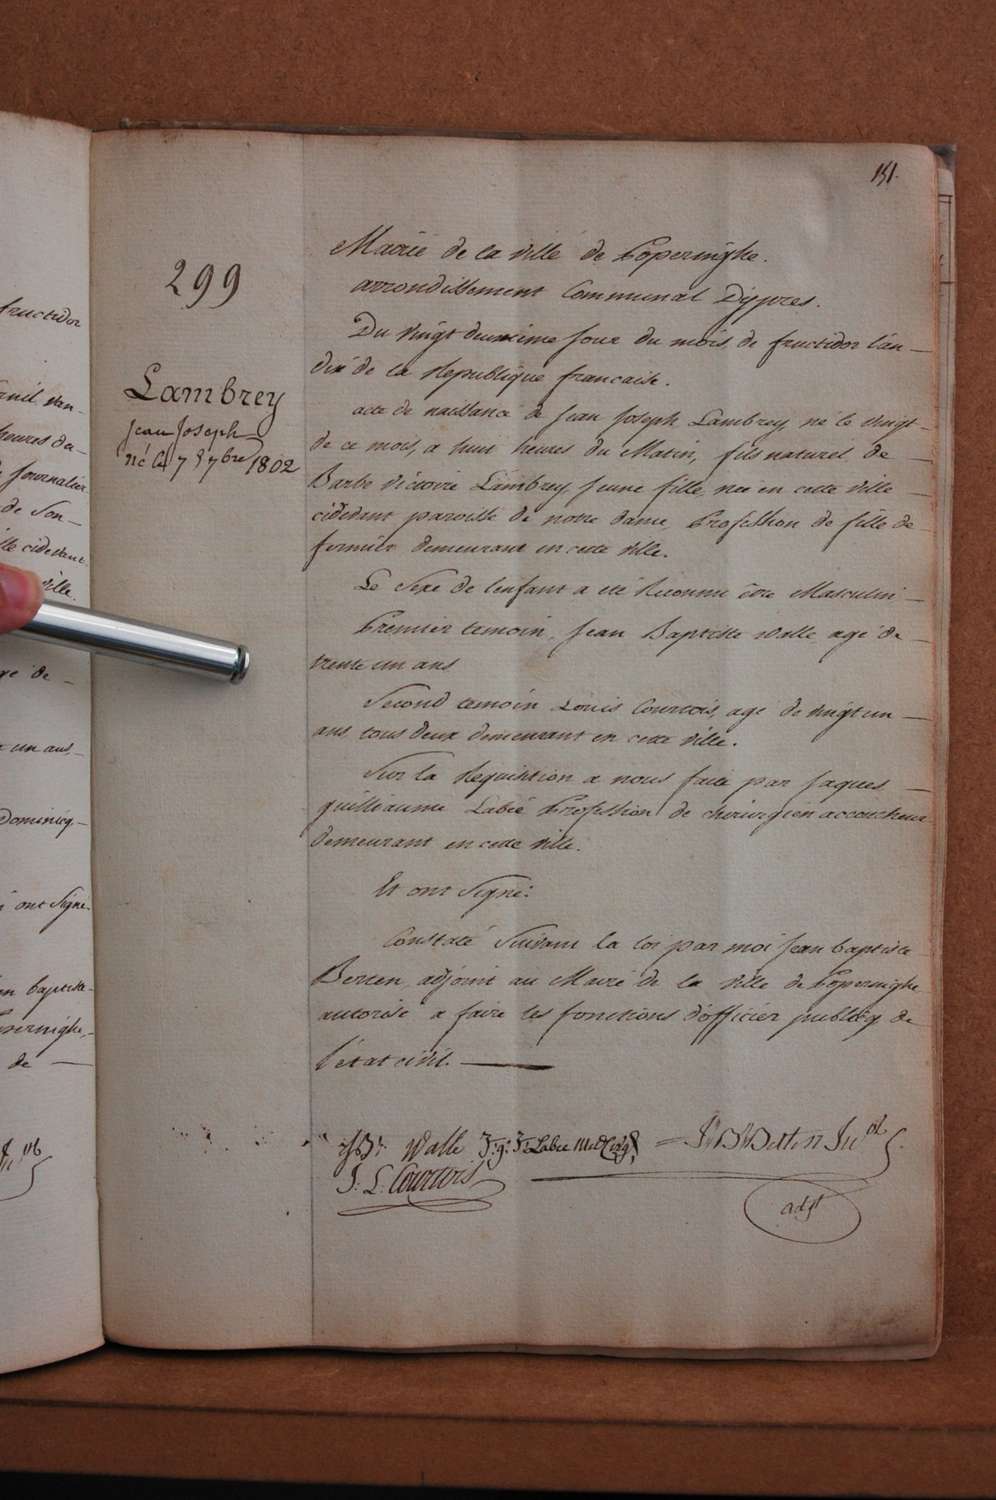 151.
299
Lambrey
Jean Joseph
né le 7 7bre 1802
Mairie de la ville de Poperinghe.
arrondissement Communal Dÿpres.
Du vingt deuxième jour du mois de fructidor l'an
dix de la Republique francaise.
acte de naissance de Jean Joseph Lambrey né le vingt
de ce mois, a huit heures du Matin, fils naturel de
Barbe victoire Lambrey jeune fille née en cette ville
cidevant paroisse de notre dame, Profession de fille de
fermier demeurant en cette ville.
Le Sexe de lenfant a eté Reconnu être Masculin
Premier temoin, Jean Baptiste Walle agé de
trente un ans
Second temoin Louis Courtois, age de vingt un
ans tous deux demeurant en cette ville.
Sur la Requisition a nous faite par Jaques
guilliaume Labié Profession de chirurgien accoucheur
demeurant en cette ville.
Et ont Signé:
Constaté Suivant la loi par moi Jean baptiste
Berten adjoint au Maire de la ville de Poperinghe
autorisé a faire les fonctions d'officier publicq de
l'état civil.
Walle
Labie
J. L. Courtois
J B Berten
adjt
fructidor
heures du
journalier
de Son
cidevant
ville.
gé de
un ans,
Dominicq
ont Signe.
baptiste
Poperinghe,
de